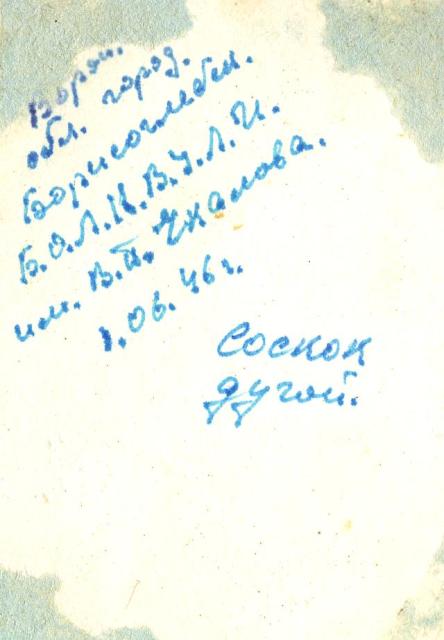 Ворон.
обл. город.
Борисоглебск.
Б.О.Л.К.В.У.Л.И.
им. В.П. Чкалова.
1.06.46г.
Соскок
дугой.